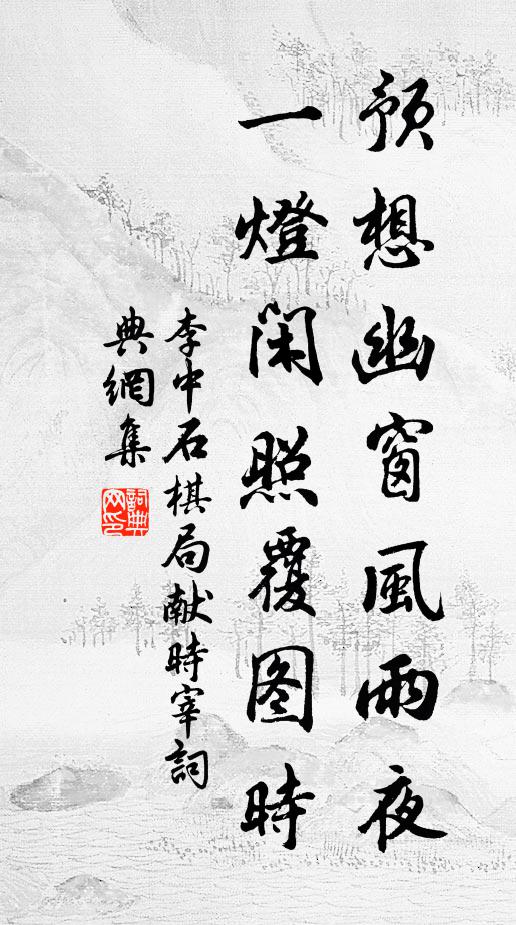 預想幽窗風雨夜
一燈閑照覆图時
李中石棋局献時宰詞
典網集
詞典网印